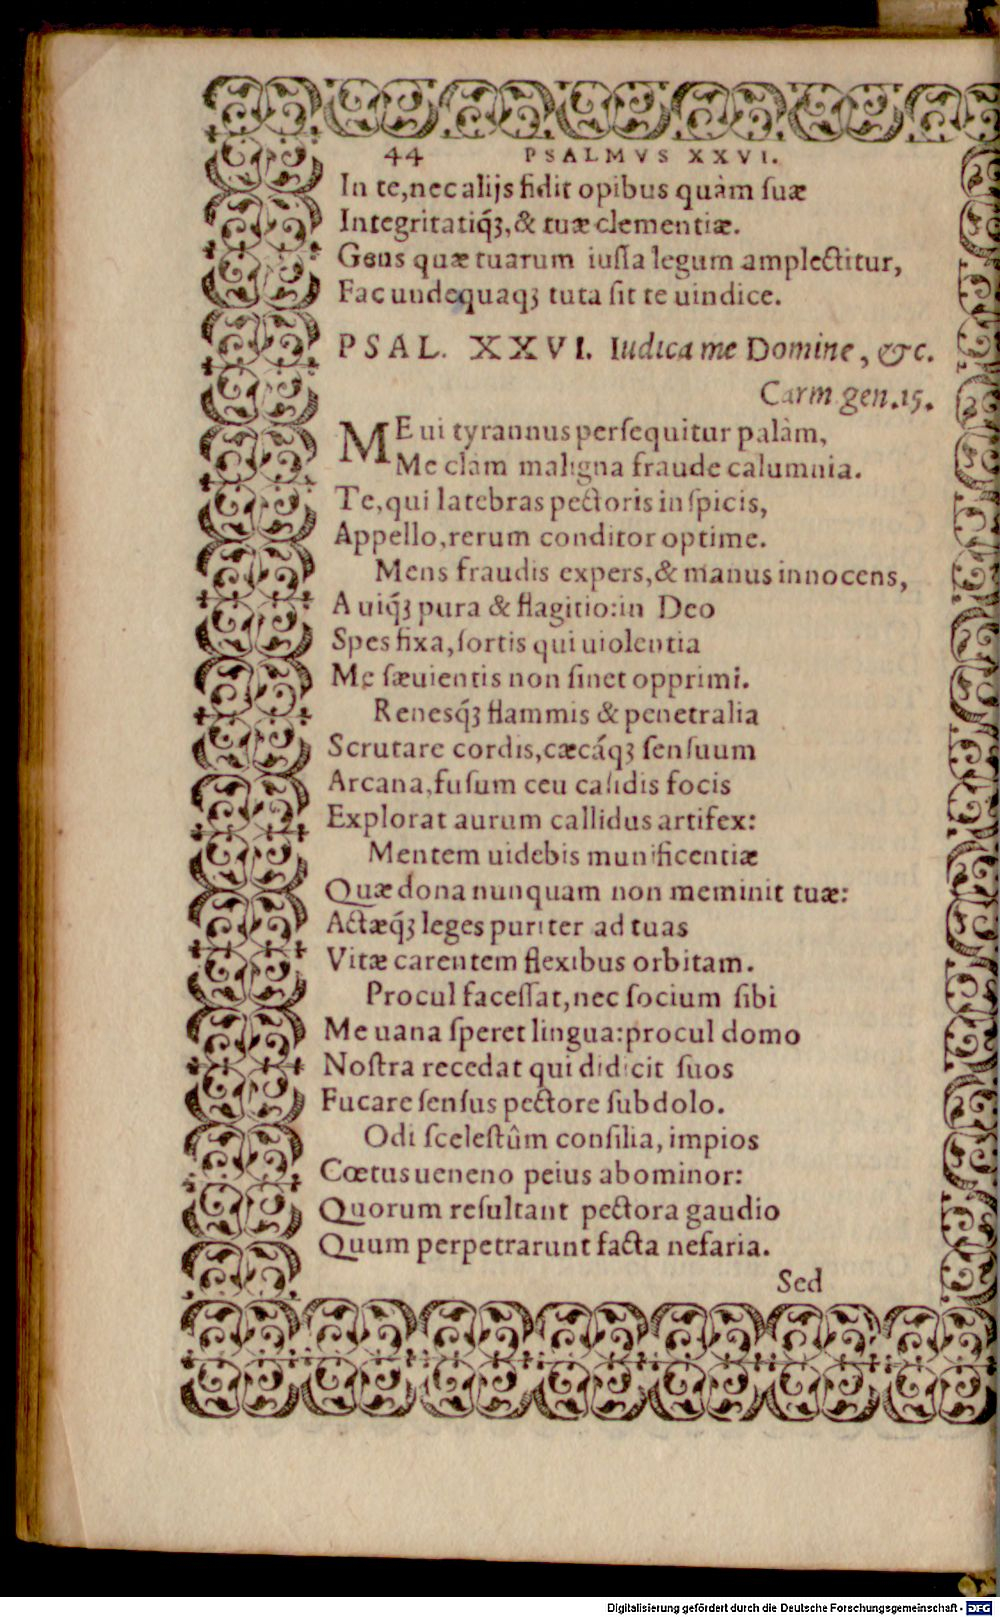 44 PSALMVS XXVI.
In te, nec alijs fidit opibus quàm ſuæ
Integritatiq́ꝫ, & tuæ clementiæ.
Gens quæ tuarum iuſſa legum amplectitur,
Fac undequaqꝫ tuta ſit te uindice.
PSAL. XXVI. Iudica me Domine, &c.
Carm gen. 15.
ME ui tyrannus perſequitur palàm,
Me clàm maligna fraude calumnia.
Te, qui latebras pectoris inſpicis,
Appello, rerum conditor optime.
Mens fraudis expers, & manus innocens,
A uiq́ꝫ pura & flagitio: in Deo
Spes fixa, ſortis qui uiolentia
Me ſæuientis non ſinet opprimi.
Renesq́ꝫ flammis & penetralia
Scrutare cordis, cæcáqꝫ ſenſuum
Arcana, fuſum ceu calidis focis
Explorat aurum callidus artifex:
Mentem uidebis munificentiæ
Quæ dona nunquam non meminit tuæ:
Actæq́ꝫ leges puriter ad tuas
Vitæ carentem flexibus orbitam.
Procul faceſſat, nec ſocium ſibi
Me uana ſperet lingua: procul domo
Noſtra recedat qui didicit ſuos
Fucare ſenſus pectore ſubdolo.
Odi ſceleſtûm conſilia, impios
Cœtus ueneno peius abominor:
Quorum reſultant pectora gaudio
Quum perpetrarunt facta nefaria.
Sed
Digitalisierung gefördert durch die Deutsche Forschungsgemeinschaft - DFG